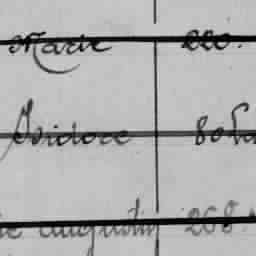 Marie 220.
Isidore 80
augustin 268.